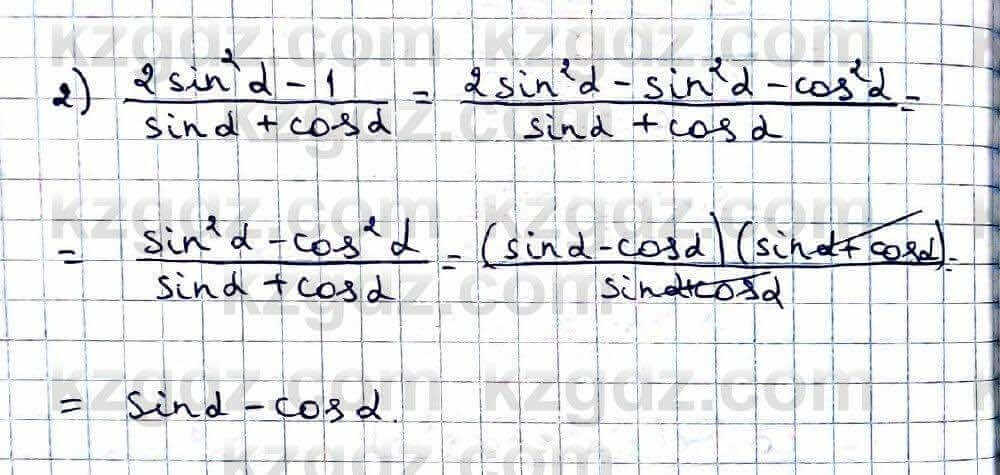 kzgdz.com kzgdz.com
2) (2sin²α - 1)/(sinα + cosα) = (2sin²α - sin²α - cos²α)/(sinα + cosα) =
kzgdz.com kzgdz.com
= (sin²α - cos²α)/(sinα + cosα) = ((sinα - cosα)(sinα + cosα))/(sinα + cosα) =
kzgdz.com kzgdz.com
= sinα - cosα.